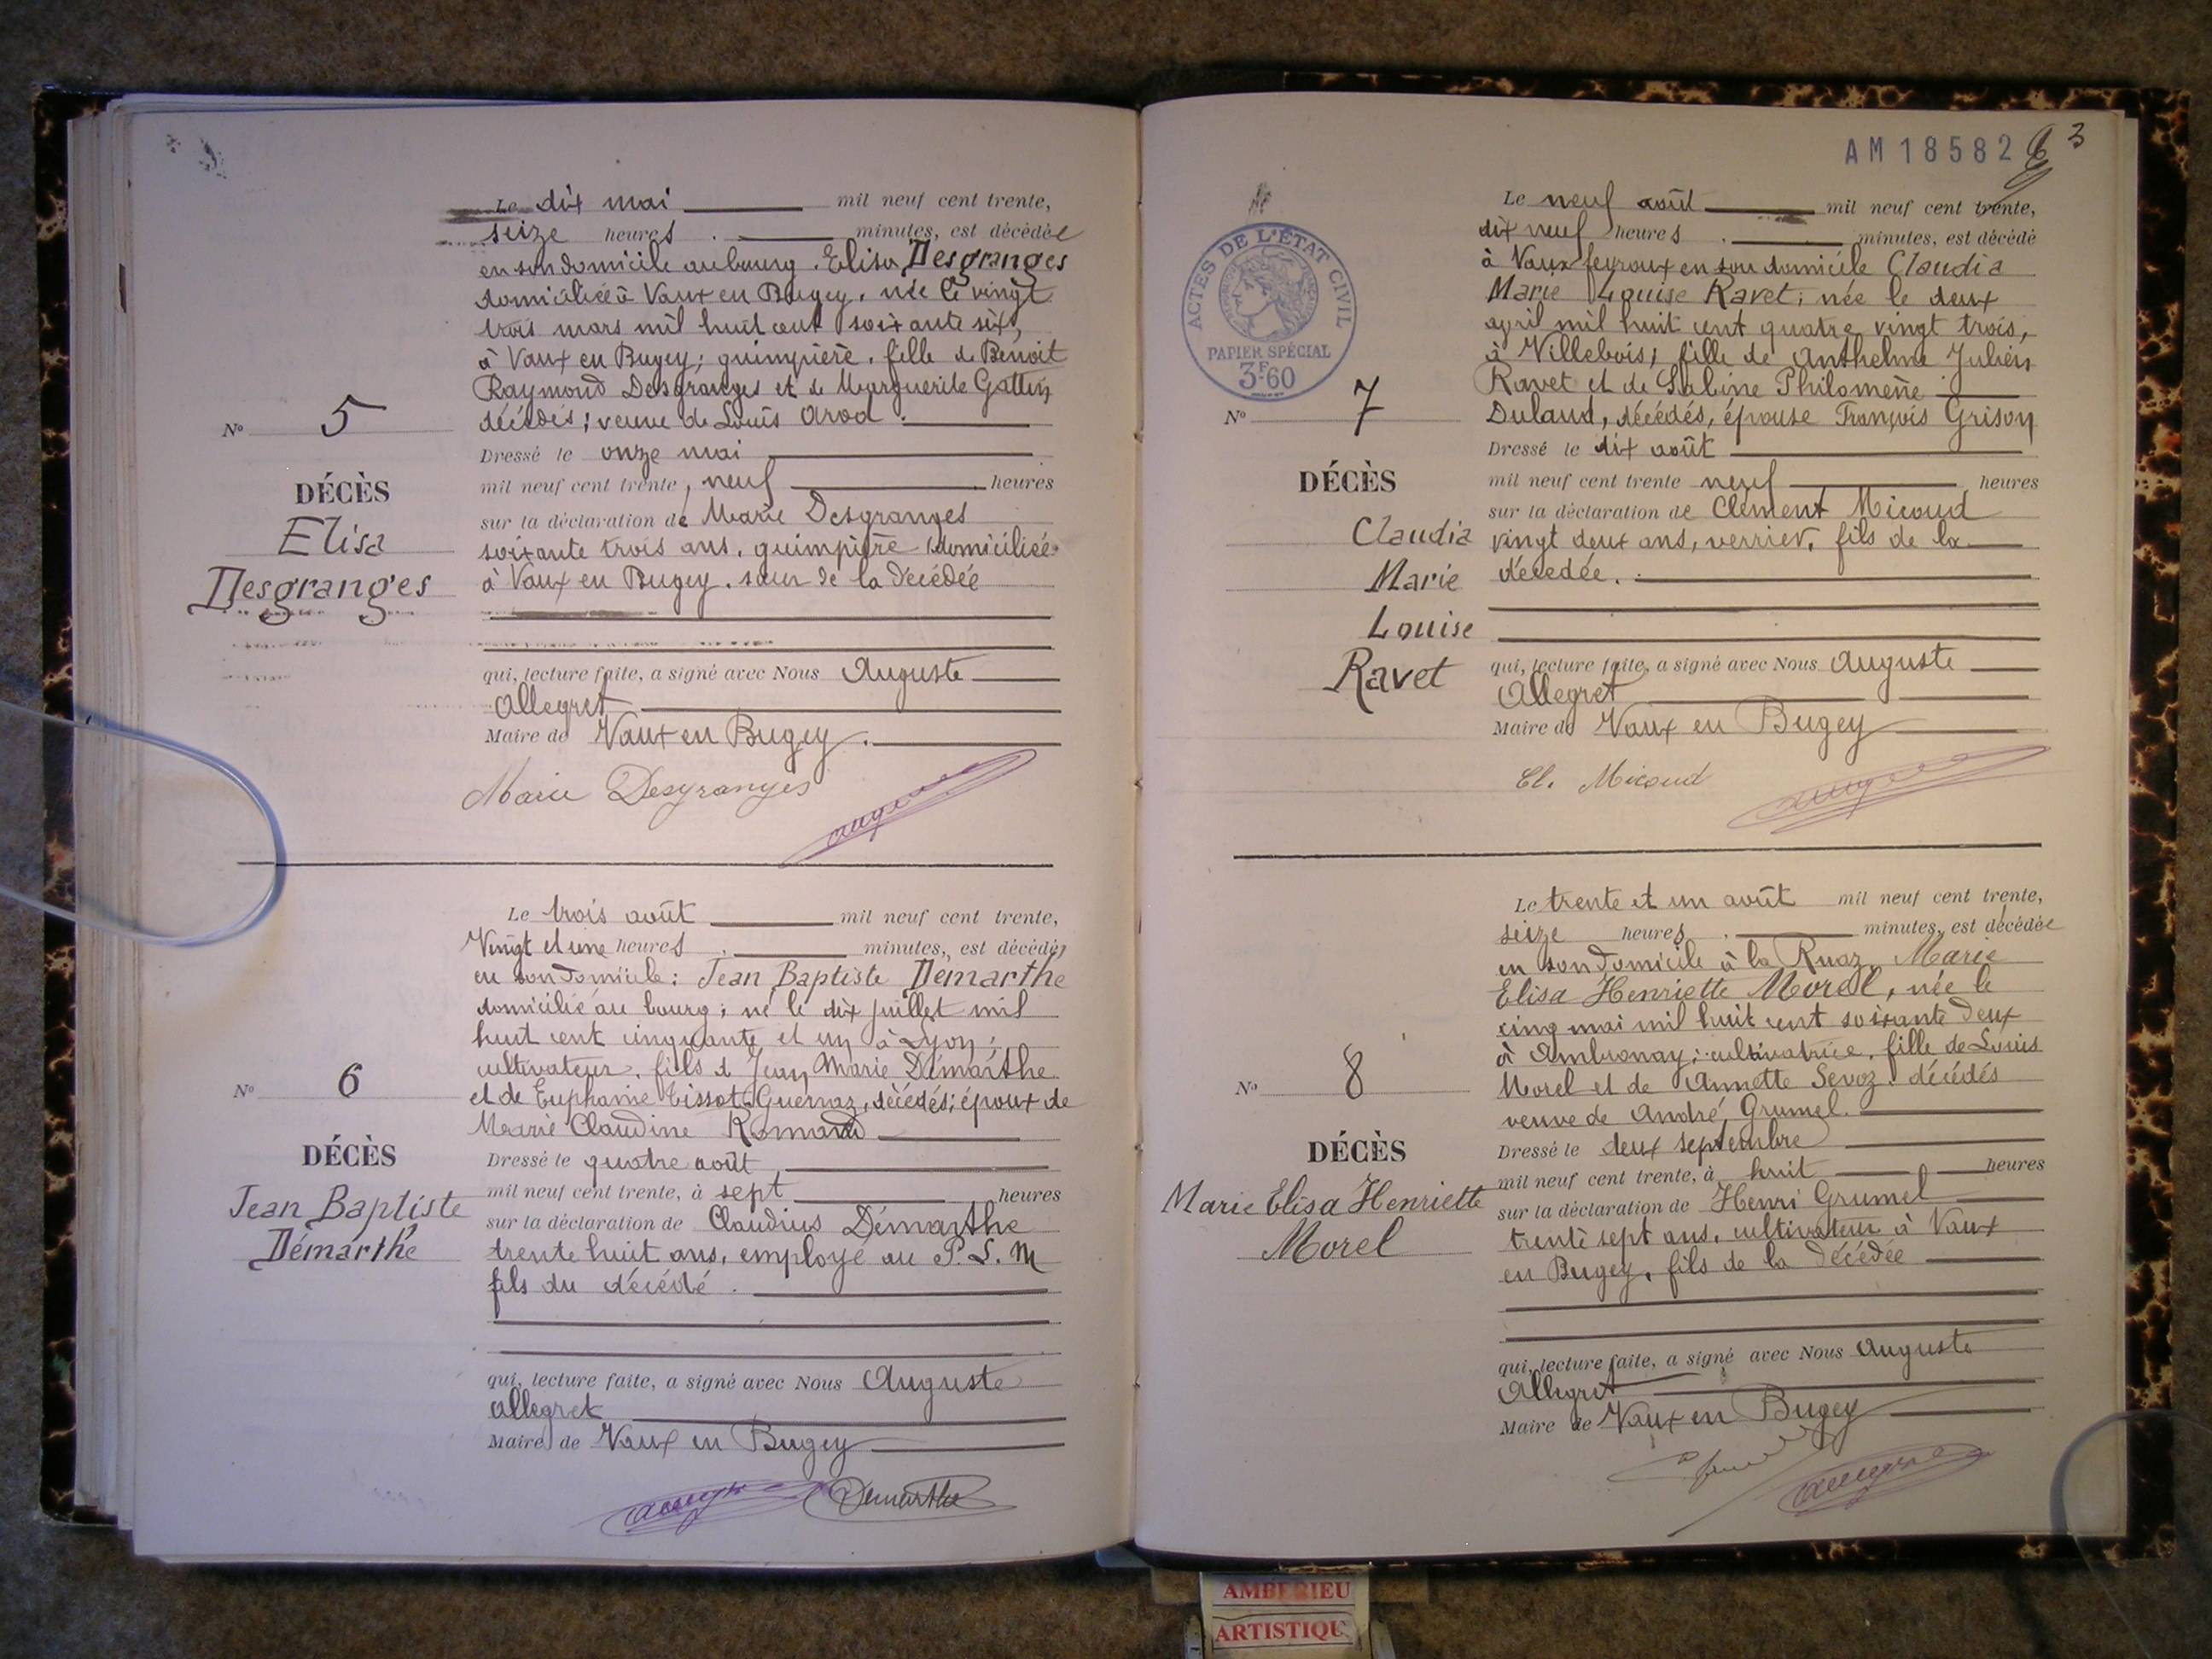 Le dix mai mil neuf cent trente,
seize heures . minutes, est décédée
en son domicile au bourg. Elisa Desgranges
domiciliée à Vaux en Bugey, née le vingt
trois mars mil huit cent soixante six,
à Vaux en Bugey; guimpière, fille de Benoit
Raymond Desgranges et de Marguerite Gattin
décédés; veuve de Louis Arod.
N° 5
Dressé le onze mai
mil neuf cent trente, neuf heures
DÉCÈS
Elisa
Desgranges
sur la déclaration de Marie Desgranges
soixante trois ans, guimpière domiciliée
à Vaux en Bugey. sœur de la décédée
qui, lecture faite, a signé avec Nous Auguste
Allegret
Maire de Vaux en Bugey.
Marie Desgranges
Le trois août mil neuf cent trente,
Vingt et une heures . minutes, est décédé,
en son domicile: Jean Baptiste Demarthe
domicilié au bourg; né le dix juillet mil
huit cent cinquante et un à Lyon;
cultivateur, fils d Jean Marie Démarthe
N° 6
et de Euphanie Tissot Guernaz, décédés; époux de
Marie Claudine Romand
DÉCÈS
Jean Baptiste
Démarthe
Dressé le quatre août,
mil neuf cent trente, à sept heures
sur la déclaration de Claudius Démarthe
trente huit ans, employé au P. L. M
fils du décédé.
qui, lecture faite, a signé avec Nous Auguste
Allegret
Maire de Vaux en Bugey
Demarthe
AM18582
3
ACTES DE L'ÉTAT CIVIL
PAPIER SPÉCIAL
3F.60
Le neuf août mil neuf cent trente,
dix neuf heures . minutes, est décédé
à Vaux feyroux en son domicile Claudia
Marie Louise Ravet; née le deux
april mil huit cent quatre vingt trois,
à Villebois; fille de Anthelme Julien
Ravet et de Sabine Philomène
N° 7
Dulaud, décédés, épouse François Grison
Dressé le dix août
DÉCÈS
Claudia
Marie
Louise
Ravet
mil neuf cent trente neuf heures
sur la déclaration de Clément Micoud
vingt deux ans, verrier, fils de la
décedée.
qui, lecture faite, a signé avec Nous Auguste
Allegret
Maire de Vaux en Bugey
Cl. Micoud
Le trente et un août mil neuf cent trente,
seize heures . minutes, est décédée
en son domicile à la Ruaz, Marie
Elisa Henriette Morel, née le
cinq mai mil huit cent soixante deux
à Ambronay; cultivatrice, fille de Louis
N° 8
Morel et de Annette Sevoz, décédés
veuve de André Grumel.
DÉCÈS
Marie Elisa Henriette
Morel
Dressé le deux septembre
mil neuf cent trente, à huit heures
sur la déclaration de Henri Grumel
trente sept ans, cultivateur à Vaux
en Bugey, fils de la décédée
qui, lecture faite, a signé avec Nous Auguste
Allegret
Maire de Vaux en Bugey
AMBERIEU
ARTISTIQU